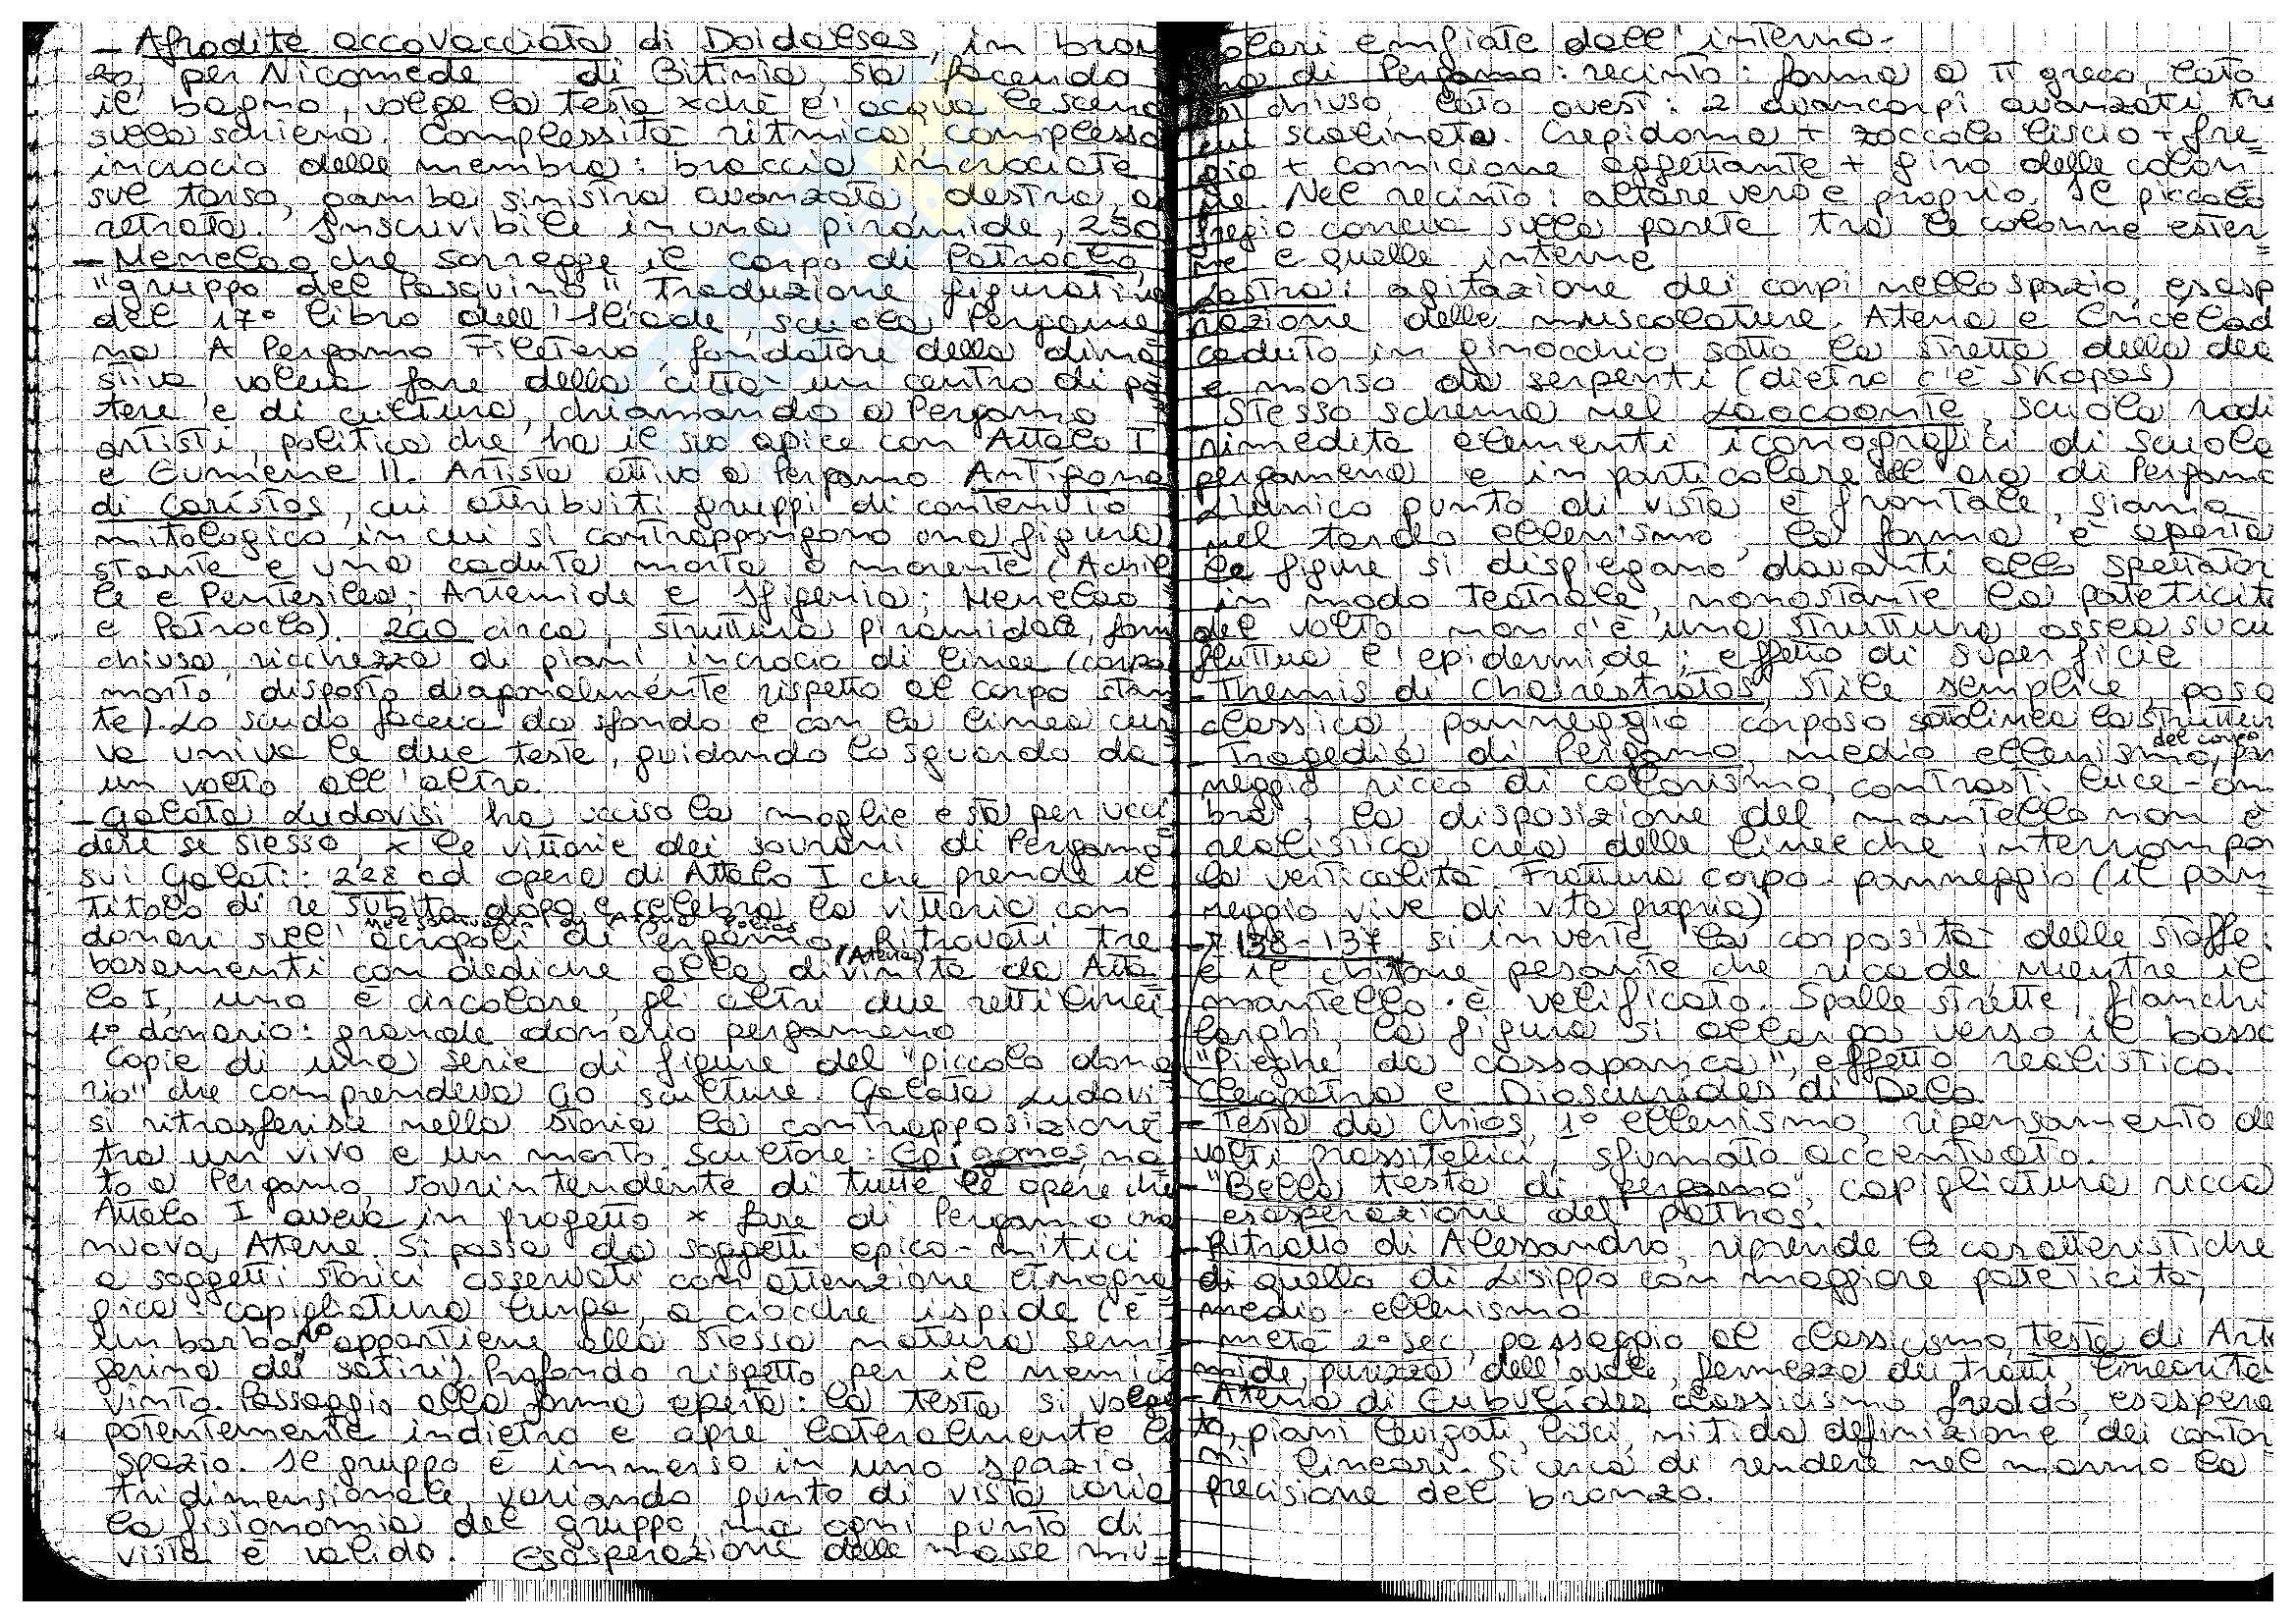 - Afrodite accovacciata di Doidalses, in bron
zo, per Nicomede di Bitinia, sta facendo
il bagno, volge la testa xchè l'acqua le scend
sulla schiena. Complessità ritmica, complesso
incrocio delle membra: braccia incrociate
sul torso, gamba sinistra avanzata, destra a
retrata. Inscrivibile in una piramide, 250
- Menelao che sorregge il corpo di Patroclo,
"gruppo del Pasquino" traduzione figurativa
del 17° libro dell'Iliade, scuola Pergame
na. A Pergamo Filetero, fondatore della dina
stiva voleva fare della città un centro di po
tere e di cultura, chiamando a Pergamo
artisti, politica che ha il suo apice con Attalo I
e Eumene II. Artista attivo a Pergamo Antigono
di Caristos, cui attribuiti gruppi di contenuto
mitologico in cui si contrappongono una figura
stante e una caduta morta o morente (Achil
le e Pentesilea; Artemide e Ifigenia; Menelao
e Patroclo). 240 circa, struttura piramidale, form
chiusa, ricchezza di piani incrocio di linee (corpo
morto disposto diagonalmente rispetto al corpo stan
te). Lo scudo faceva da sfondo e con la linea cur
va univa le due teste, guidando lo sguardo da
un volto all'altro.
- Galata Ludovisi ha ucciso la moglie e sta per ucci
dere se stesso, x le vittorie dei sovrani di Pergamo
sui Galati: 228 ad opera di Attalo I che prende il
titolo di re subito dopo e celebra la vittoria con
donari sull'acropoli di Pergamo. Ritrovati tre
basamenti con dediche alla divinità (Atena) da Atta
lo I, uno è circolare, gli altri due rettilinei
1° donario: grande donario pergameno
Copie di una serie di figure del "piccolo dona
rio" che comprendeva 60 sculture. Galata Ludovi
si ritrasferisce nella storia la contrapposizione
tra un vivo e un morto. Scultore: Epigonos, na
to a Pergamo, sovrintendente di tutte le opere che
Attalo I aveva in progetto x fare di Pergamo una
nuova Atene. Si passa da soggetti epico-mitici
a soggetti storici osservati con attenzione etnogra
fica: capigliatura lunga, a ciocche ispide (è
un barbaro, appartiene alla stessa natura semi
ferina dei satiri). Profondo rispetto per il nemico
vinto. Passaggio alla forma aperta: la testa si volge
potentemente indietro e apre lateralmente lo
spazio. Il gruppo è immerso in uno spazio
tridimensionale, variando punto di vista varia
la fisionomia del gruppo, ma ogni punto di
vista è valido. Esasperazione delle masse mu-
scolari enfiate dall'interno.
ra di Pergamo: recinto: forma a π greco, lato
est chiuso, lato ovest: 2 avancorpi avanzati tra
cui scalinata. Crepidoma + zoccolo liscio + fre
gio + cornicione aggettante + giro delle colon
ne. Nel recinto: altare vero e proprio. Il piccolo
fregio correva sulla parete tra le colonne ester
ne e quelle interne
Lastra: agitazione dei corpi nello spazio, esasp
razione delle muscolature. Atena e Encelad
caduto in ginocchio sotto la stretta della dea
e morso da serpenti (dietro c'è Skopas)
- Stesso schema nel Laocoonte, scuola rodi
rimedita elementi iconografici di scuola
pergamena e in particolare del ara di Pergamo
L'unico punto di vista è frontale, siamo
nel tardo ellenismo, la forma è aperta
le figure si dispiegano davanti allo spettator
in modo teatrale, nonostante la pateticità
del volto non c'è una struttura ossea sucu
fluttua l'epidermide: effetto di superficie
- Themis di Chairéstratos, stile semplice, posa
classica, panneggio corposo sottolinea la struttur
del corpo
- Tragedia di Pergamo, medio ellenismo, pan
neggio ricco di colorismo, contrasti luce-om
bra, la disposizione del mantello non è
realistica, crea delle linee che interrompon
la verticalità. Frattura corpo-panneggio (il pan
neggio vive di vita propria)
- 138-137 si inverte la corposità delle stoffe:
è il chitone pesante che ricade mentre il
mantello è velificato. Spalle strette, fianchi
larghi, la figura si allarga verso il basso
"Pieghe da cassapanca", effetto realistico.
Cleopatra e Dioscurides di Delo.
- Testa da Chios, 1° ellenismo, ripensamento de
volti prassitelici, sfumato accentuato.
- "Bella testa di pergamo", capigliatura ricca
esasperazione del pathos.
- Ritratto di Alessandro, riprende le caratteristiche
di quello di Lisippo con maggiore pateticità,
medio-ellenismo
- metà 2° sec, passaggio al classicismo, testa di Arte
mide, purezza dell'ovale, fermezza dei tratti, linearità
- Atena di Eubulides classicismo freddo, esaspera
to, piani levigati, lisci, nitida definizione dei contor
ni lineari. Si cerca di rendere nel marmo la
precisione del bronzo.